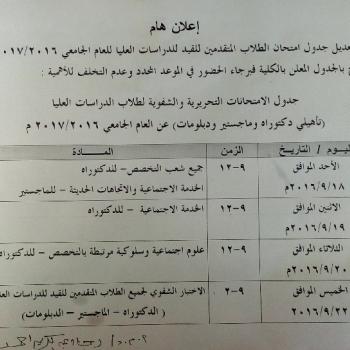 إعلان هام
تعديل جدول امتحان الطلاب المتقدمين للقيد للدراسات العليا للعام الجامعي ٢٠١٧/٢٠١٦
بالجدول المعلن بالكلية فبرجاء الحضور في الموعد المحدد وعدم التخلف للأهمية :
جدول الامتحانات التحريرية والشفوية لطلاب الدراسات العليا
(تأهيلي دكتوراه وماجستير ودبلومات) عن العام الجامعي ٢٠١٧/٢٠١٦ م
اليوم / التاريخ الزمن المادة
الأحد الموافق ٩-١٢ جميع شعب التخصص - للدكتوراه
٢٠١٦/٩/١٨م الخدمة الاجتماعية والاتجاهات الحديثة - للماجستير
الاثنين الموافق ٩-١٢ الخدمة الاجتماعية - للدكتوراه
٢٠١٦/٩/١٩م
الثلاثاء الموافق ٩-١٢ علوم اجتماعية وسلوكية مرتبطة بالتخصص - للدكتوراه
٢٠١٦/٩/٢٠م
الخميس الموافق ٩-٢ الاختبار الشفوي لجميع الطلاب المتقدمين للقيد للدراسات العليا
٢٠١٦/٩/٢٢ (الدكتوراه - الماجستير - الدبلومات)